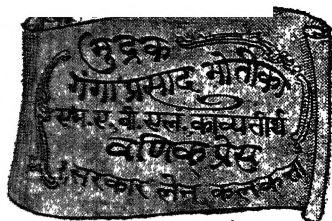 मुद्रक
गंगाप्रसाद भोतीका
एम. ए. बी. एल. काव्यतीर्थ
वणिक् प्रेस
१ सरकार लेन, कलकत्ता